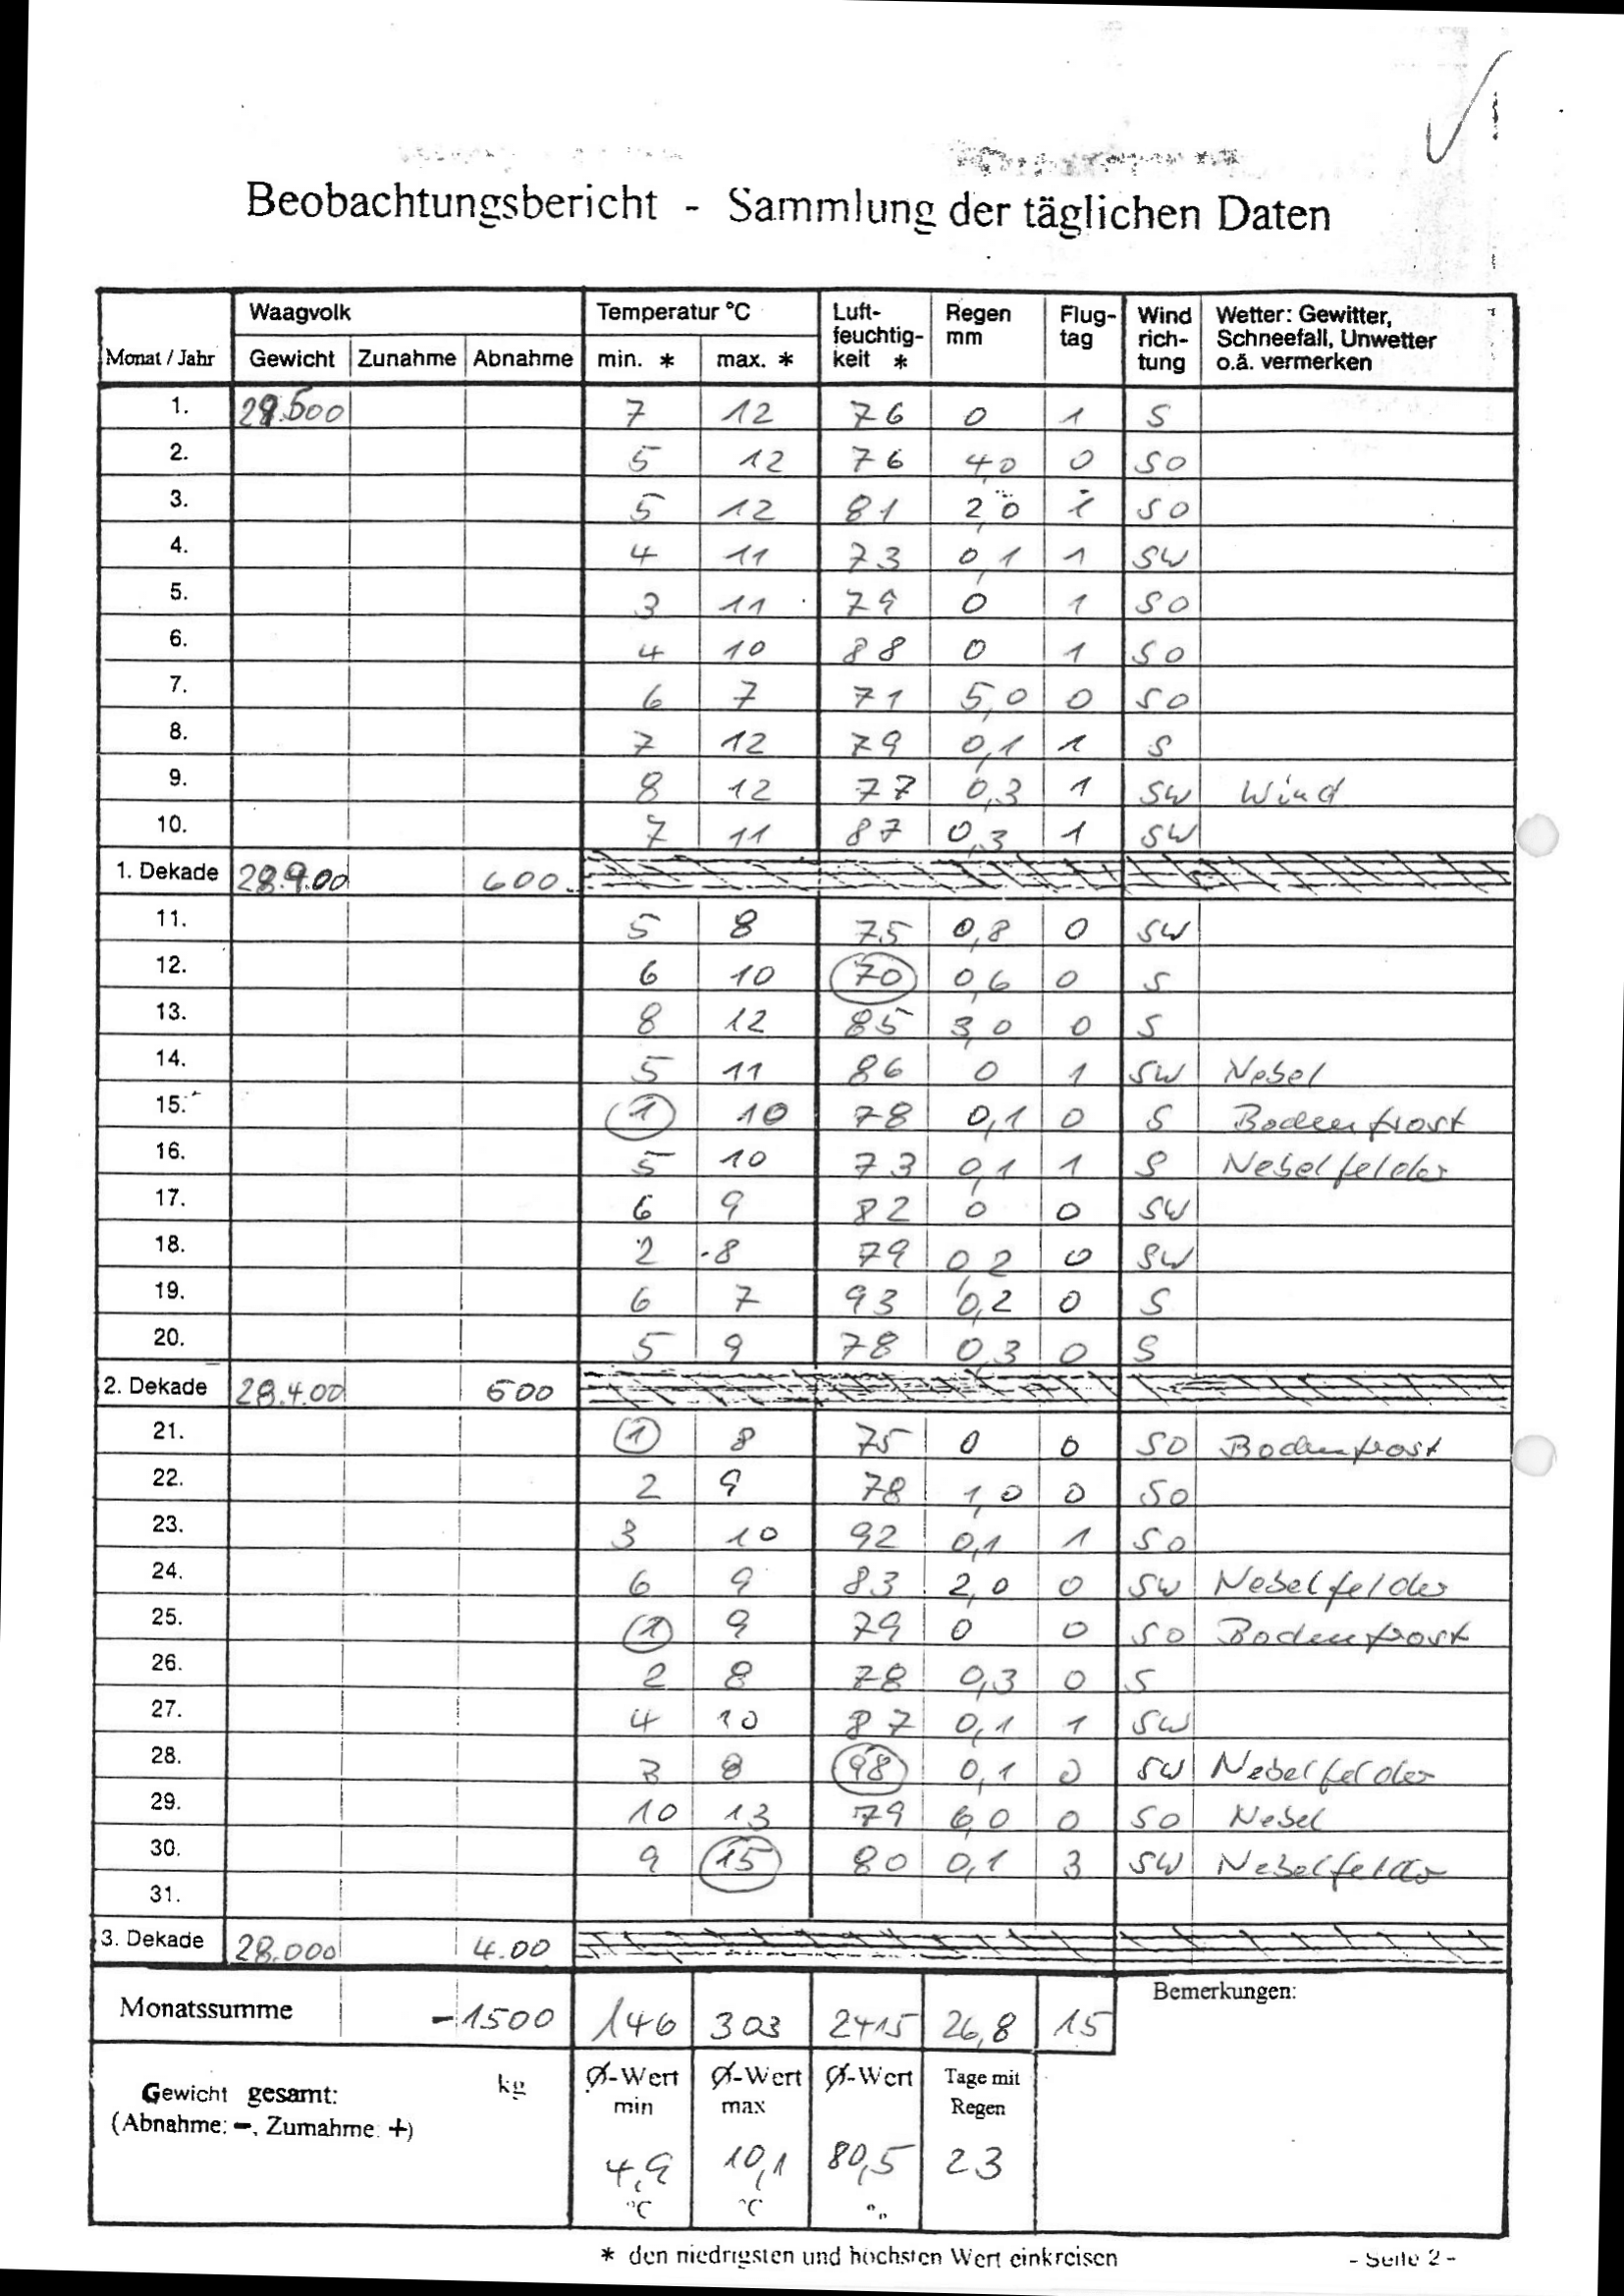 Beobachtungsbericht - Sammlung der täglichen Daten
Monat / Jahr Waagvolk Temperatur °C Luft-feuchtig-keit * Regen mm Flug-tag Wind rich-tung Wetter: Gewitter, Schneefall, Unwetter o.ä. vermerken
Gewicht Zunahme Abnahme min. * max. *
1. 29.500 7 12 76 0 1 S
2. 5 12 76 4,0 0 SO
3. 5 12 81 2,0 1 SO
4. 4 11 73 0,1 1 SW
5. 3 11 79 0 1 SO
6. 4 10 88 0 1 SO
7. 6 7 71 5,0 0 SO
8. 7 12 79 0,1 1 S
9. 8 12 77 0,3 1 SW Wind
10. 7 11 87 0,3 1 SW
1. Dekade 28.900 600
11. 5 8 75 0,8 0 SW
12. 6 10 70 0,6 0 S
13. 8 12 85 3,0 0 S
14. 5 11 86 0 1 SW Nebel
15. 1 10 78 0,1 0 S Bodenfrost
16. 5 10 73 0,1 1 S Nebelfelder
17. 6 9 82 0 0 SW
18. 2 8 79 0,2 0 SW
19. 6 7 93 0,2 0 S
20. 5 9 78 0,3 0 S
2. Dekade 28.400 500
21. 1 8 75 0 0 SO Bodenfrost
22. 2 9 78 1,0 0 SO
23. 3 10 92 0,1 1 SO
24. 6 9 83 2,0 0 SW Nebelfelder
25. 1 9 79 0 0 SO Bodenfrost
26. 2 8 78 0,3 0 S
27. 4 10 87 0,1 1 SW
28. 3 8 98 0,1 0 SW Nebelfelder
29. 10 13 79 6,0 0 SO Nebel
30. 9 15 80 0,1 3 SW Nebelfelder
31.
3. Dekade 28.000 4.00
Monatssumme -1500 146 303 2415 26,8 15 Bemerkungen:
Gewicht gesamt: kg Ø-Wert min Ø-Wert max Ø-Wert Tage mit Regen
(Abnahme: -, Zumahme: +)
4,9 °C 10,1 °C 80,5 23
* den niedrigsten und höchsten Wert einkreisen - Seite 2 -